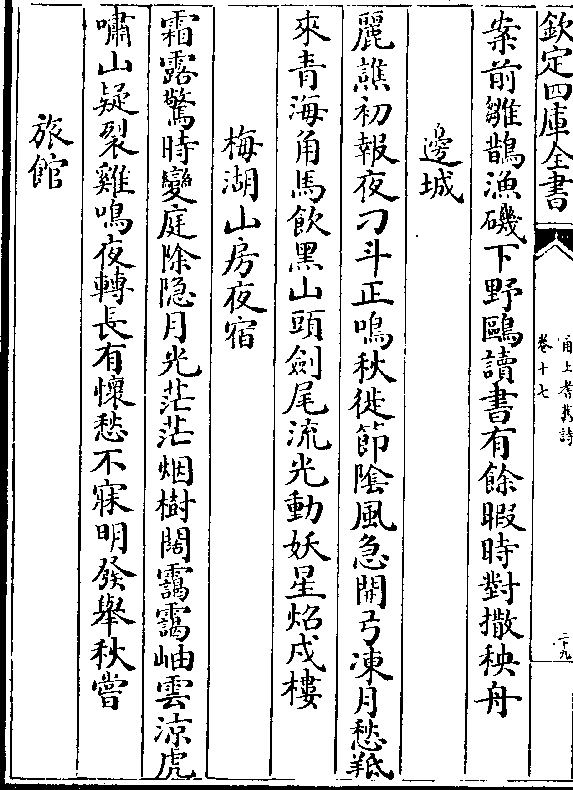 欽定四庫全書
甬上耆舊詩
卷十七
二十九
案前雛鵲漁磯下野鷗讀書有餘暇時對撒秧舟
邊城
麗譙初報夜刁斗正鳴秋徙節隂風急開弓凍月愁羝
來青海角馬飲黑山頭劍尾流光動妖星炤戍樓
梅湖山房夜宿
霜露驚時變庭除隐月光茫茫烟樹闊靄靄岫雲涼虎
嘯山疑裂雞鳴夜轉長有懷愁不寐明發舉秋嘗
旅館